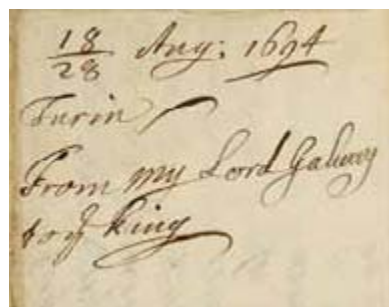 18/28 Aug: 1694
Turin
From my Lord Galway
to ye King